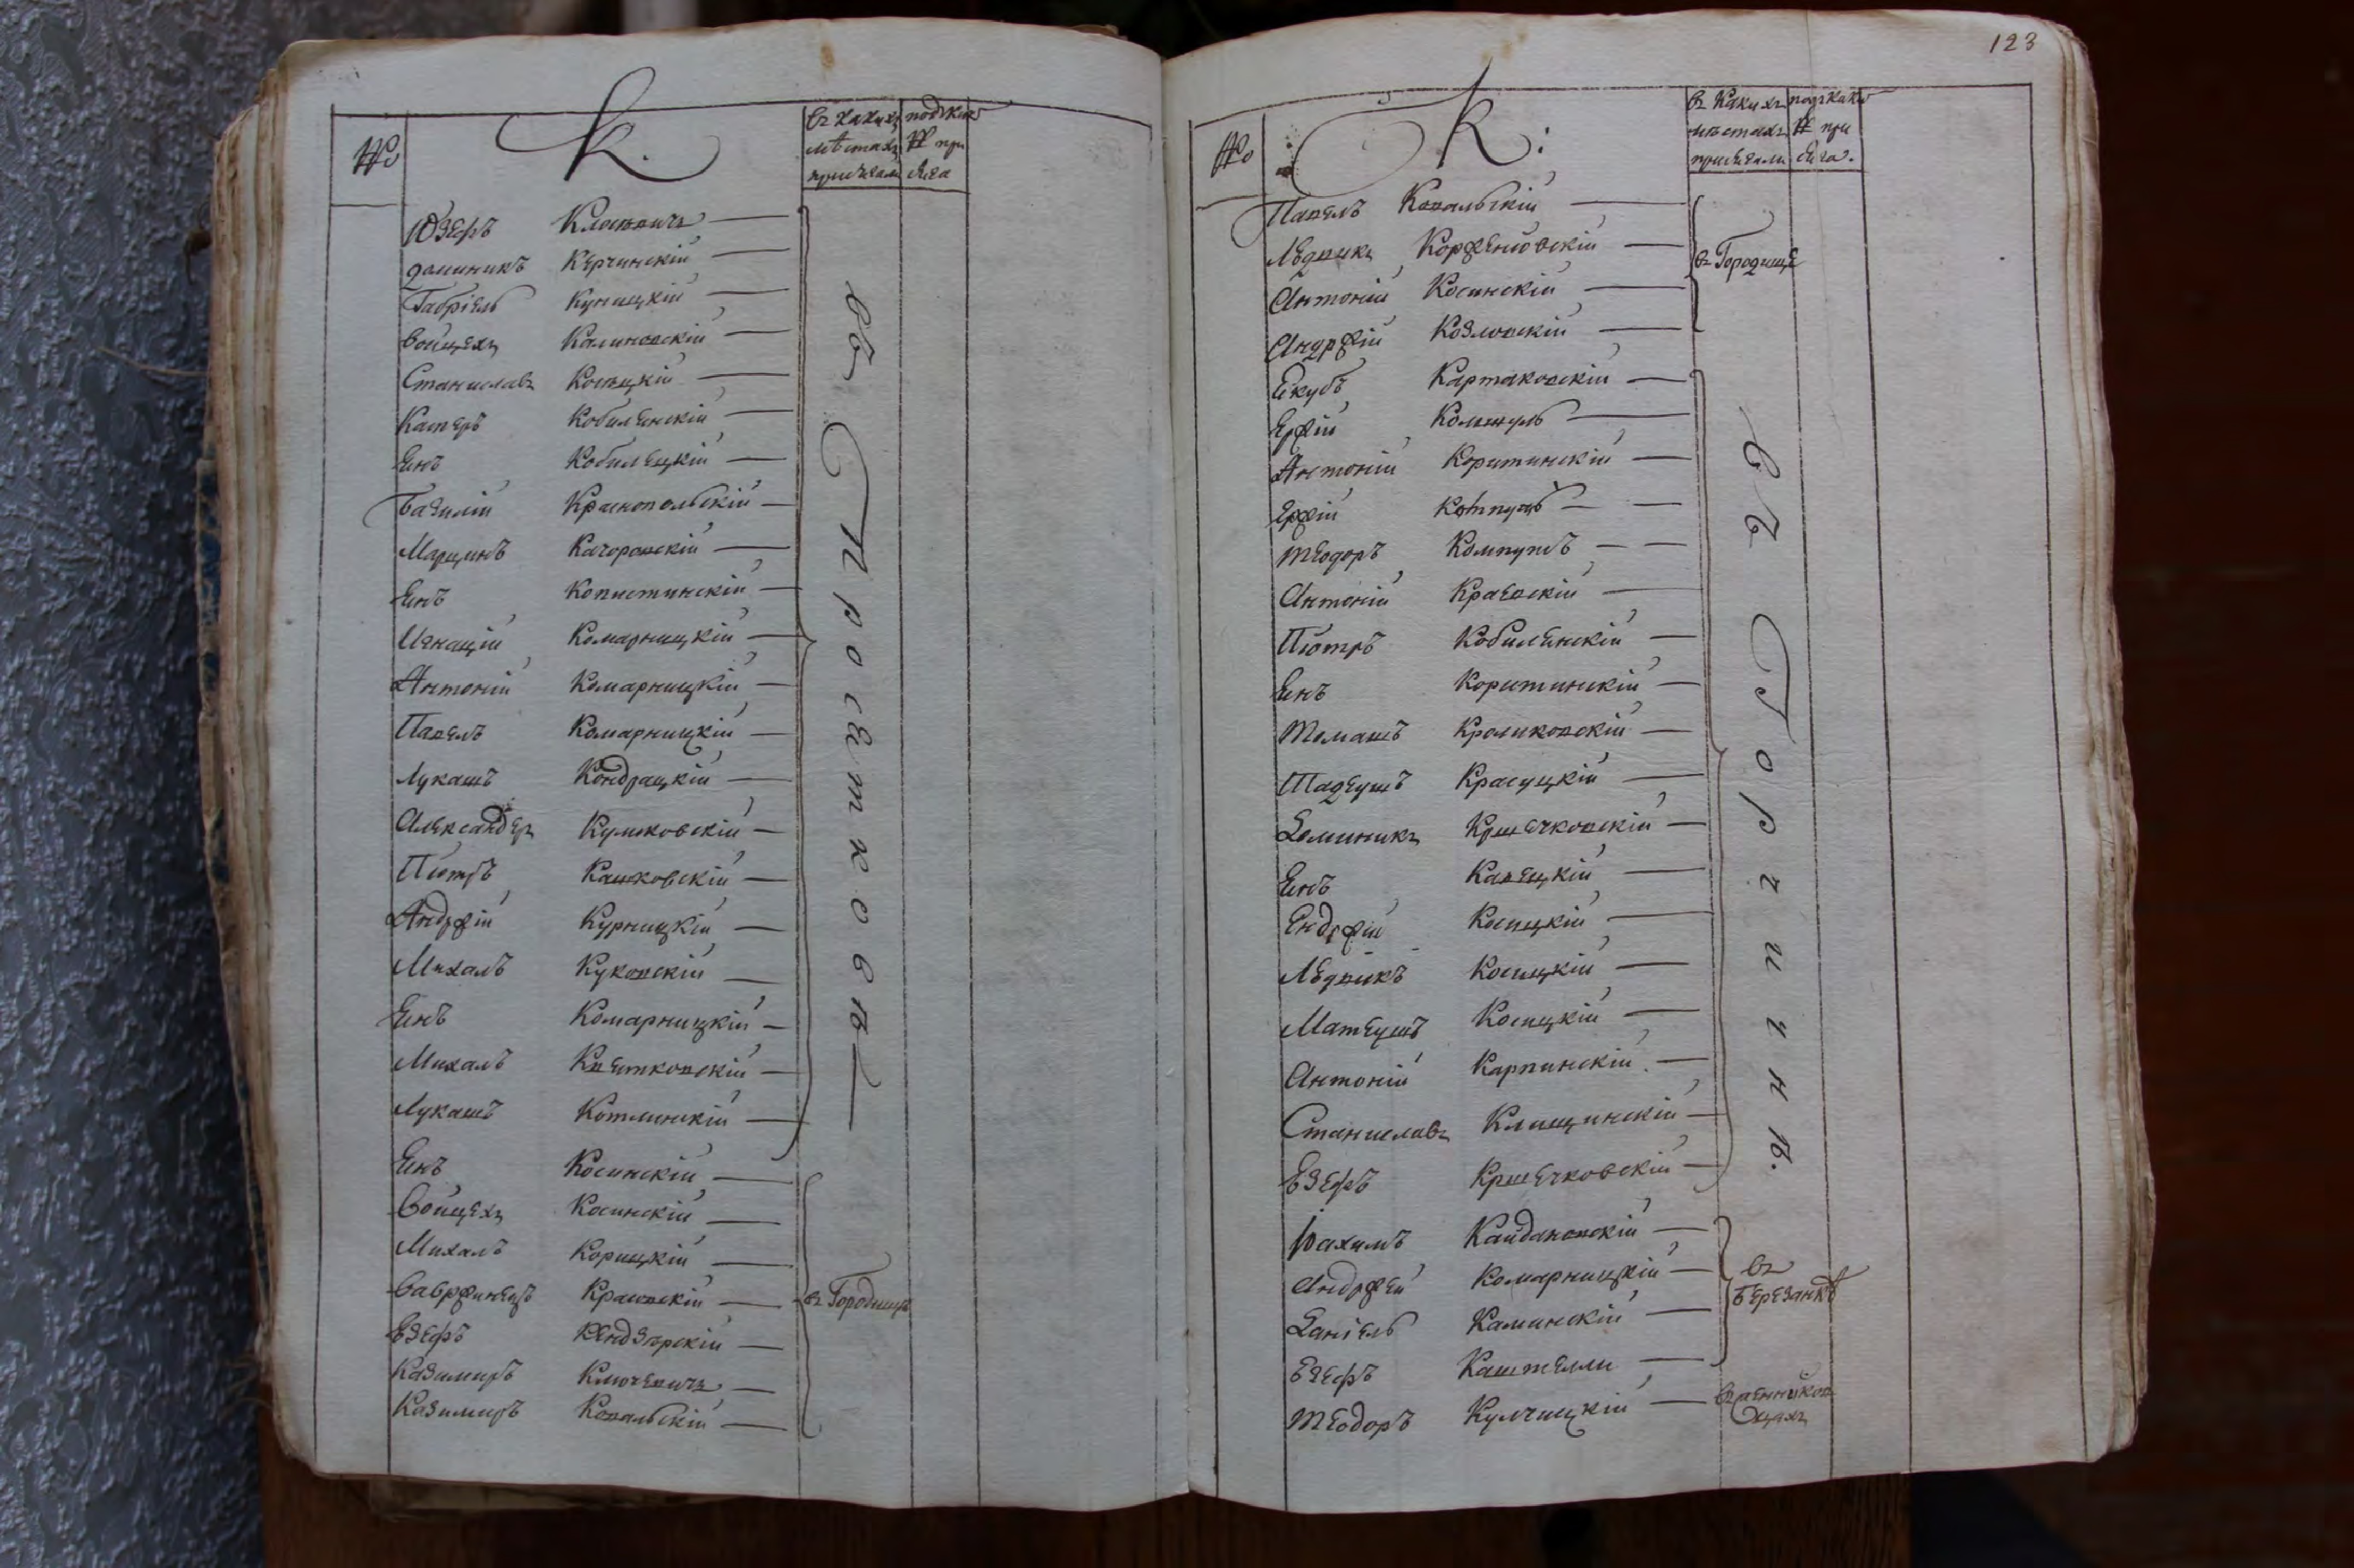 №
К.
въ какихъ
мѣстахъ
присягали
подъ какимъ
№ при
сяга
Юзефъ Клосовичъ
доминикъ Керчинскій
Габріель Куницкій
Войцехъ Калиновскій
Станиславъ Косѣцкій
Касперъ Кобилянскій
Янъ Кобилецкій
Базилій Краснопольскій
Марцинъ Качоровскій
Янъ Копистинскій
Игнацій Комарницкій
Антоній Комарницкій
Павелъ Комарницкій
Лукашъ Кондрацкій
Александеръ Куликовскій
Піотръ Кашковскій
Андрѣй Курницкій
Михалъ Куковскій
Янъ Комарницкій
Михалъ Квятковскій
Лукашъ Котлинскій
въ Просяткове
Янъ Косинскій
Войцехъ Косинскій
Михалъ Корицкій
Ваврѣинецъ Красовскій
Езефъ Кендзѣрскій
Казимиръ Ключевичъ
Казимиръ Ковальскій
въ Городище
123
№
К:
въ какихъ
мѣстахъ
присягали
подъ какимъ
№ при
сяга.
Павелъ Ковальскій
Людвикъ Корженіовскій
Антоній Косинскій
Андржій Козловскій
въ Городище
Якубъ Картаковскій
Ержій
Антоній Коритинскій
Ержій
Теодоръ Компутъ
Антоній Краевскій
Піотръ Кобилянскій
Янъ Коритинскій
Томашъ Кроликовскій
Тадеушъ Красуцкій
Доминикъ Кршечковскій
Янъ Кавецкій
Ендржій Косицкій
Людвикъ Косицкій
Матеушъ Косицкій
Антоній Карпинскій
Станиславъ Клищинскій
Езефъ Кршечковскій
въ
Іоахимъ Кайдановскій
Андржей Комарницкій
Даніель Каминскій
Езефъ Каштелли
въ
Березанкѣ
Теодоръ Кулчицкій